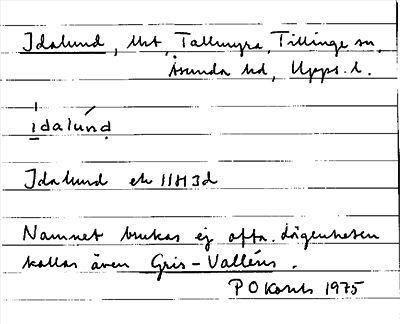 Idalund, lht, Tallmyra, Tillinge sn,
Åsunda hd, Upps. l.
idalúnd
Idalund ek 11H3d
Namnet brukas ej ofta. Lägenheten
kallas även Gris-Valléns.
P O 1975